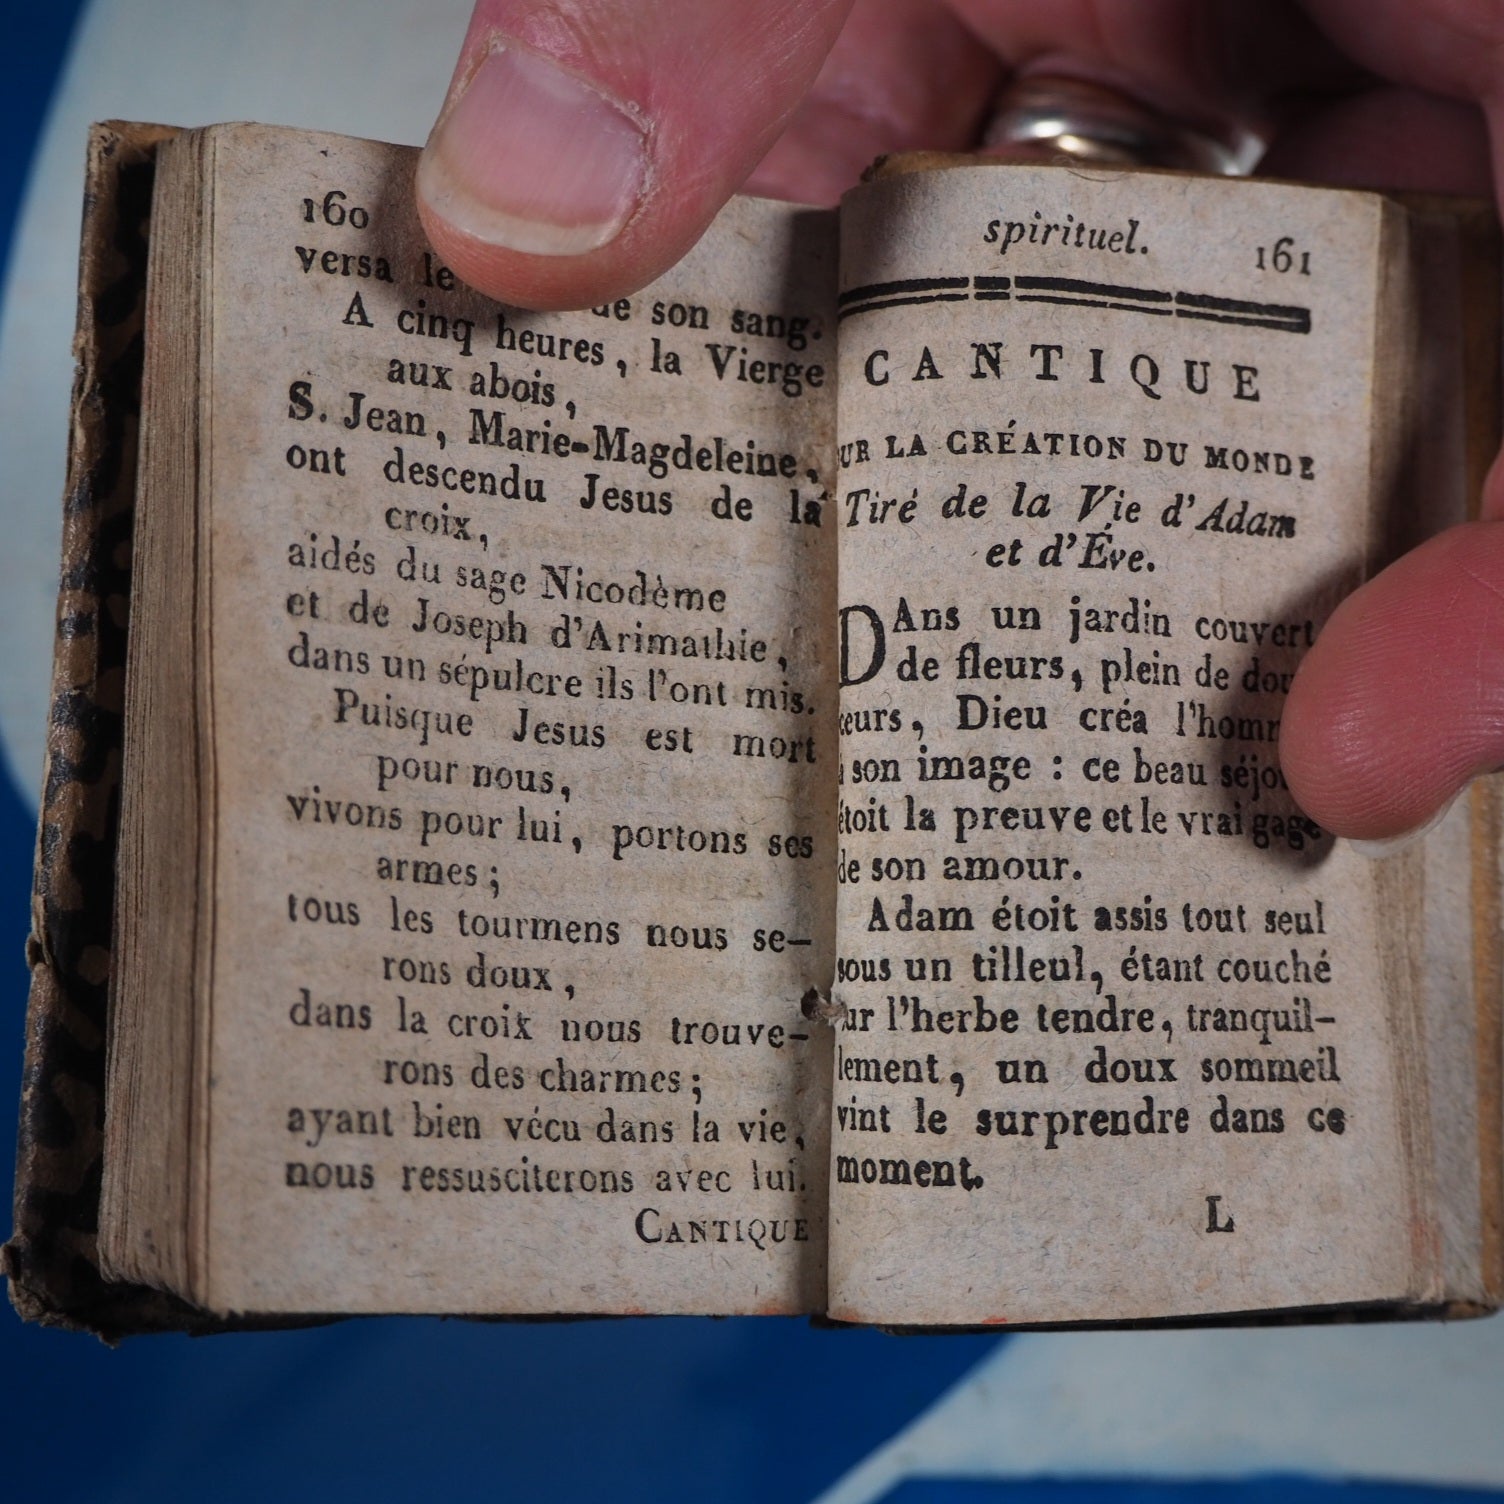 160
versa le de son sang.
A cinq heures, la Vierge
aux abois,
S. Jean, Marie-Magdeleine,
ont descendu Jesus de la
croix,
aidés du sage Nicodème
et de Joseph d'Arimathie,
dans un sépulcre ils l'ont mis.
Puisque Jesus est mort
pour nous,
vivons pour lui, portons ses
armes;
tous les tourmens nous se-
rons doux,
dans la croix nous trouve-
rons des charmes;
ayant bien vécu dans la vie,
nous ressusciterons avec lui.
CANTIQUE
spirituel. 161
CANTIQUE
UR LA CRÉATION DU MONDE
Tiré de la Vie d'Adam
et d'Éve.
DAns un jardin couvert
de fleurs, plein de dou
ceurs, Dieu créa l'homm
à son image : ce beau séjou
étoit la preuve et le vrai gage
de son amour.
Adam étoit assis tout seul
sous un tilleul, étant couché
ur l'herbe tendre, tranquil-
lement, un doux sommeil
vint le surprendre dans ce
moment.
L